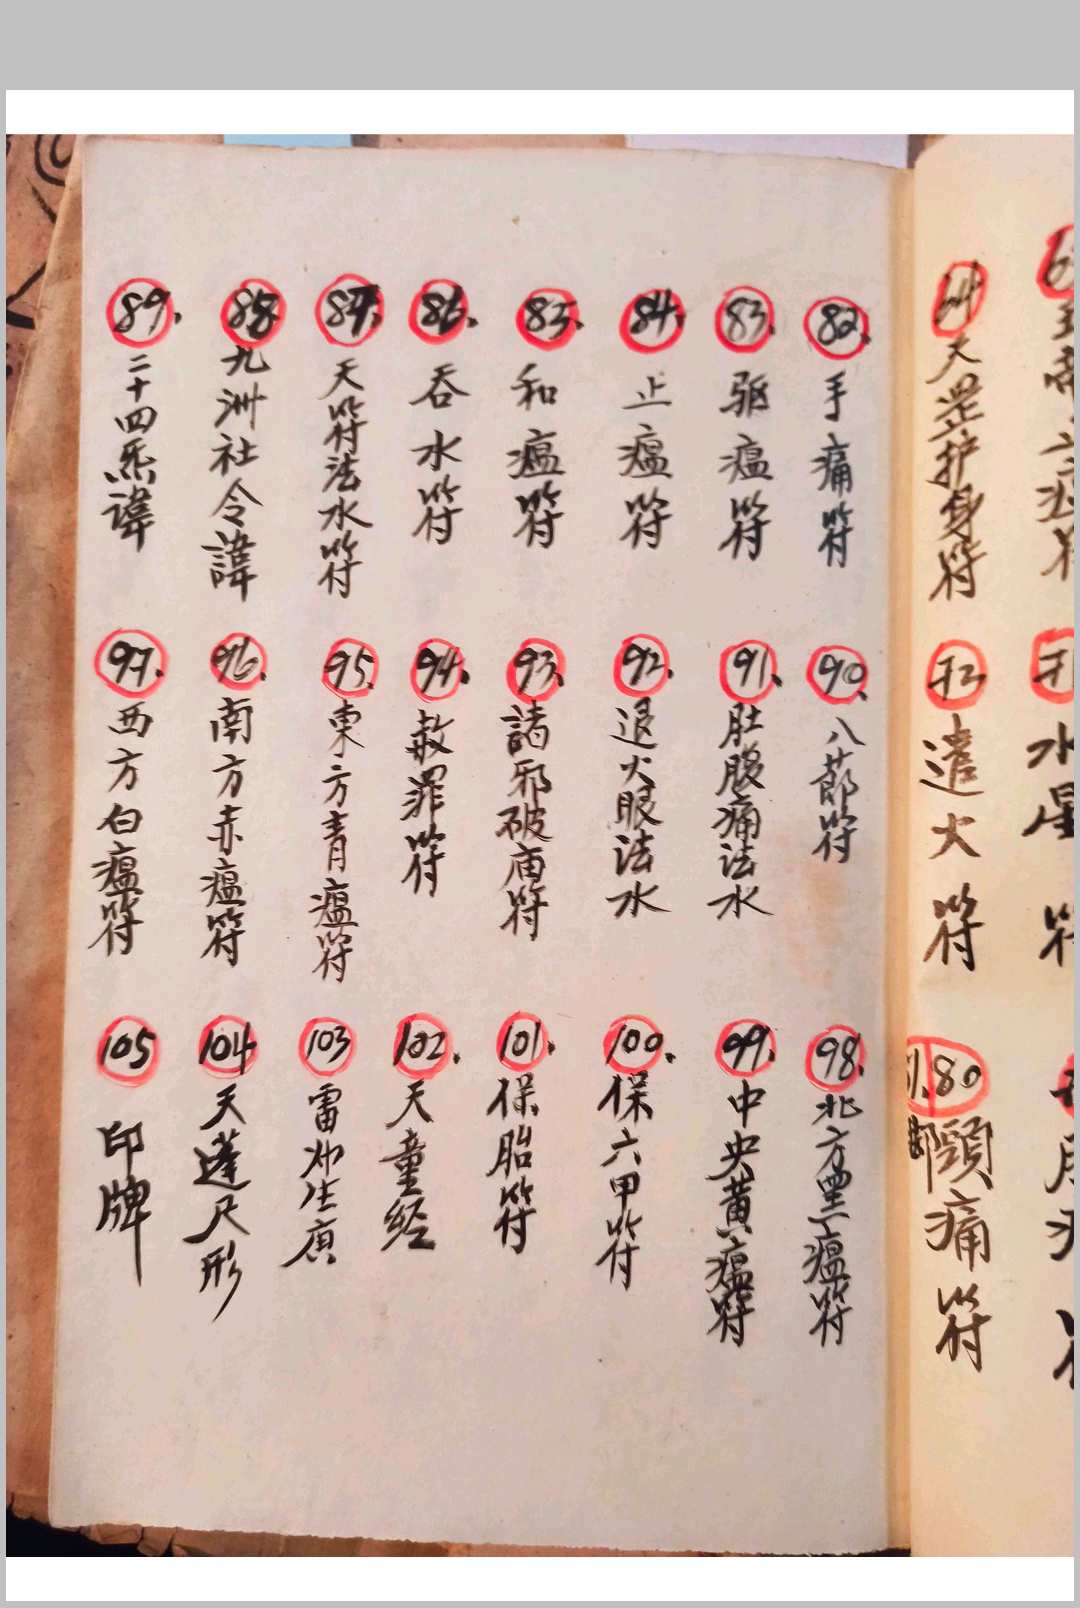 64
天罡护身符
72
遣火符
80
頸痛符
水星符
82.
手痛符
83.
驱瘟符
84.
止瘟符
85.
和瘟符
86.
吞水符
87.
天符法水符
88.
九洲社令諱
89.
二十四炁諱
90.
八節符
91.
肚腹痛法水
92.
退火眼法水
93.
諸邪破庙符
94.
赦罪符
95.
東方青瘟符
96.
南方赤瘟符
97.
西方白瘟符
98.
北方黑瘟符
99.
中央黄瘟符
100.
保六甲符
101.
保胎符
102.
天童经
103
雷生庚
104
天蓬尺形
105
印牌